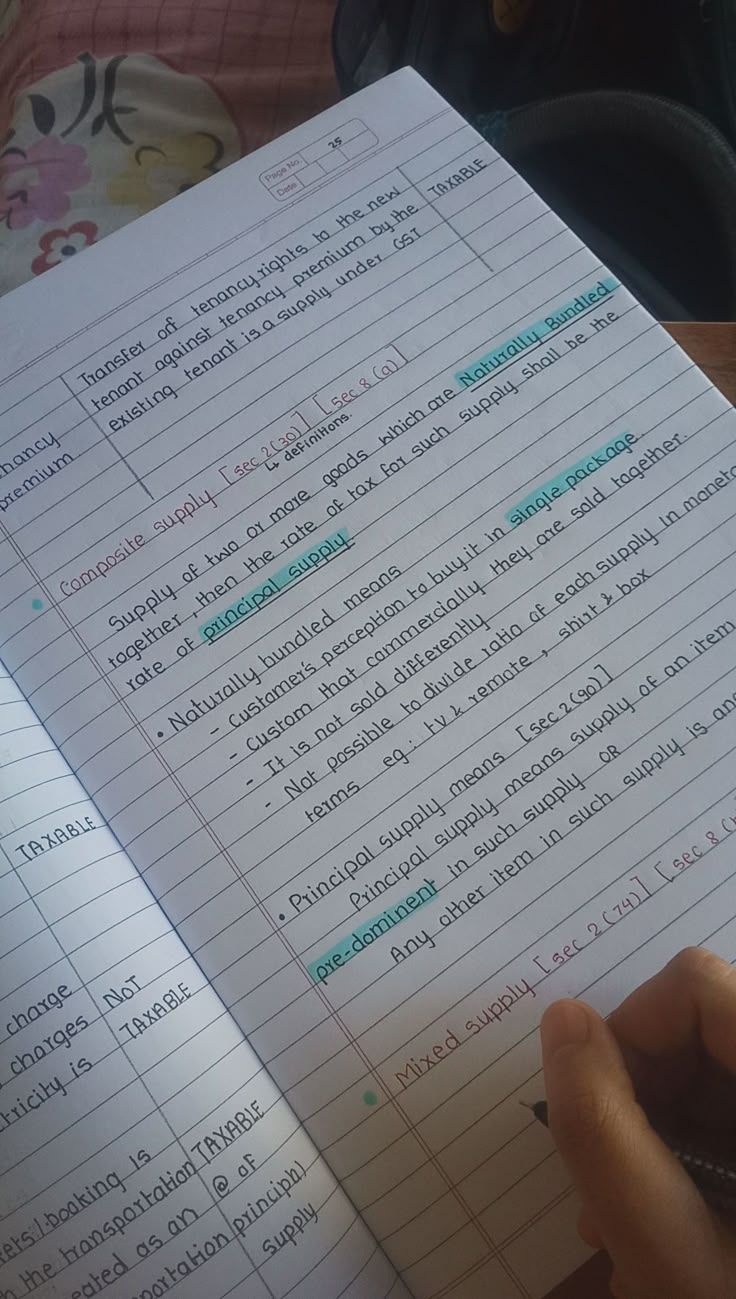 Page No. 25
Date
Transfer of tenancy rights to the new
tenant against tenancy premium by the
existing tenant is a supply under GST
TAXABLE
premium
Composite supply [sec 2(30)] [sec 8(a)]
↳ definitions.
Supply of two or more goods which are Naturally Bundled
together, then the rate of tax for such supply shall be the
rate of principal supply.
• Naturally bundled means
- Customer's perception to buy it in single package.
- Custom that commercially they are sold together.
- It is not sold differently
- Not possible to divide ratio of each supply in
terms eg: TV & remote, shirt & box
• Principal supply means [sec 2(90)]
Principal supply means supply of an item
pre-dominent in such supply OR
Any other item in such supply is
Mixed supply [sec 2(74)] [sec 8
TAXABLE
charge
charges
is
NOT
TAXABLE
booking is
the transportation
as an
TAXABLE
@ of
supply